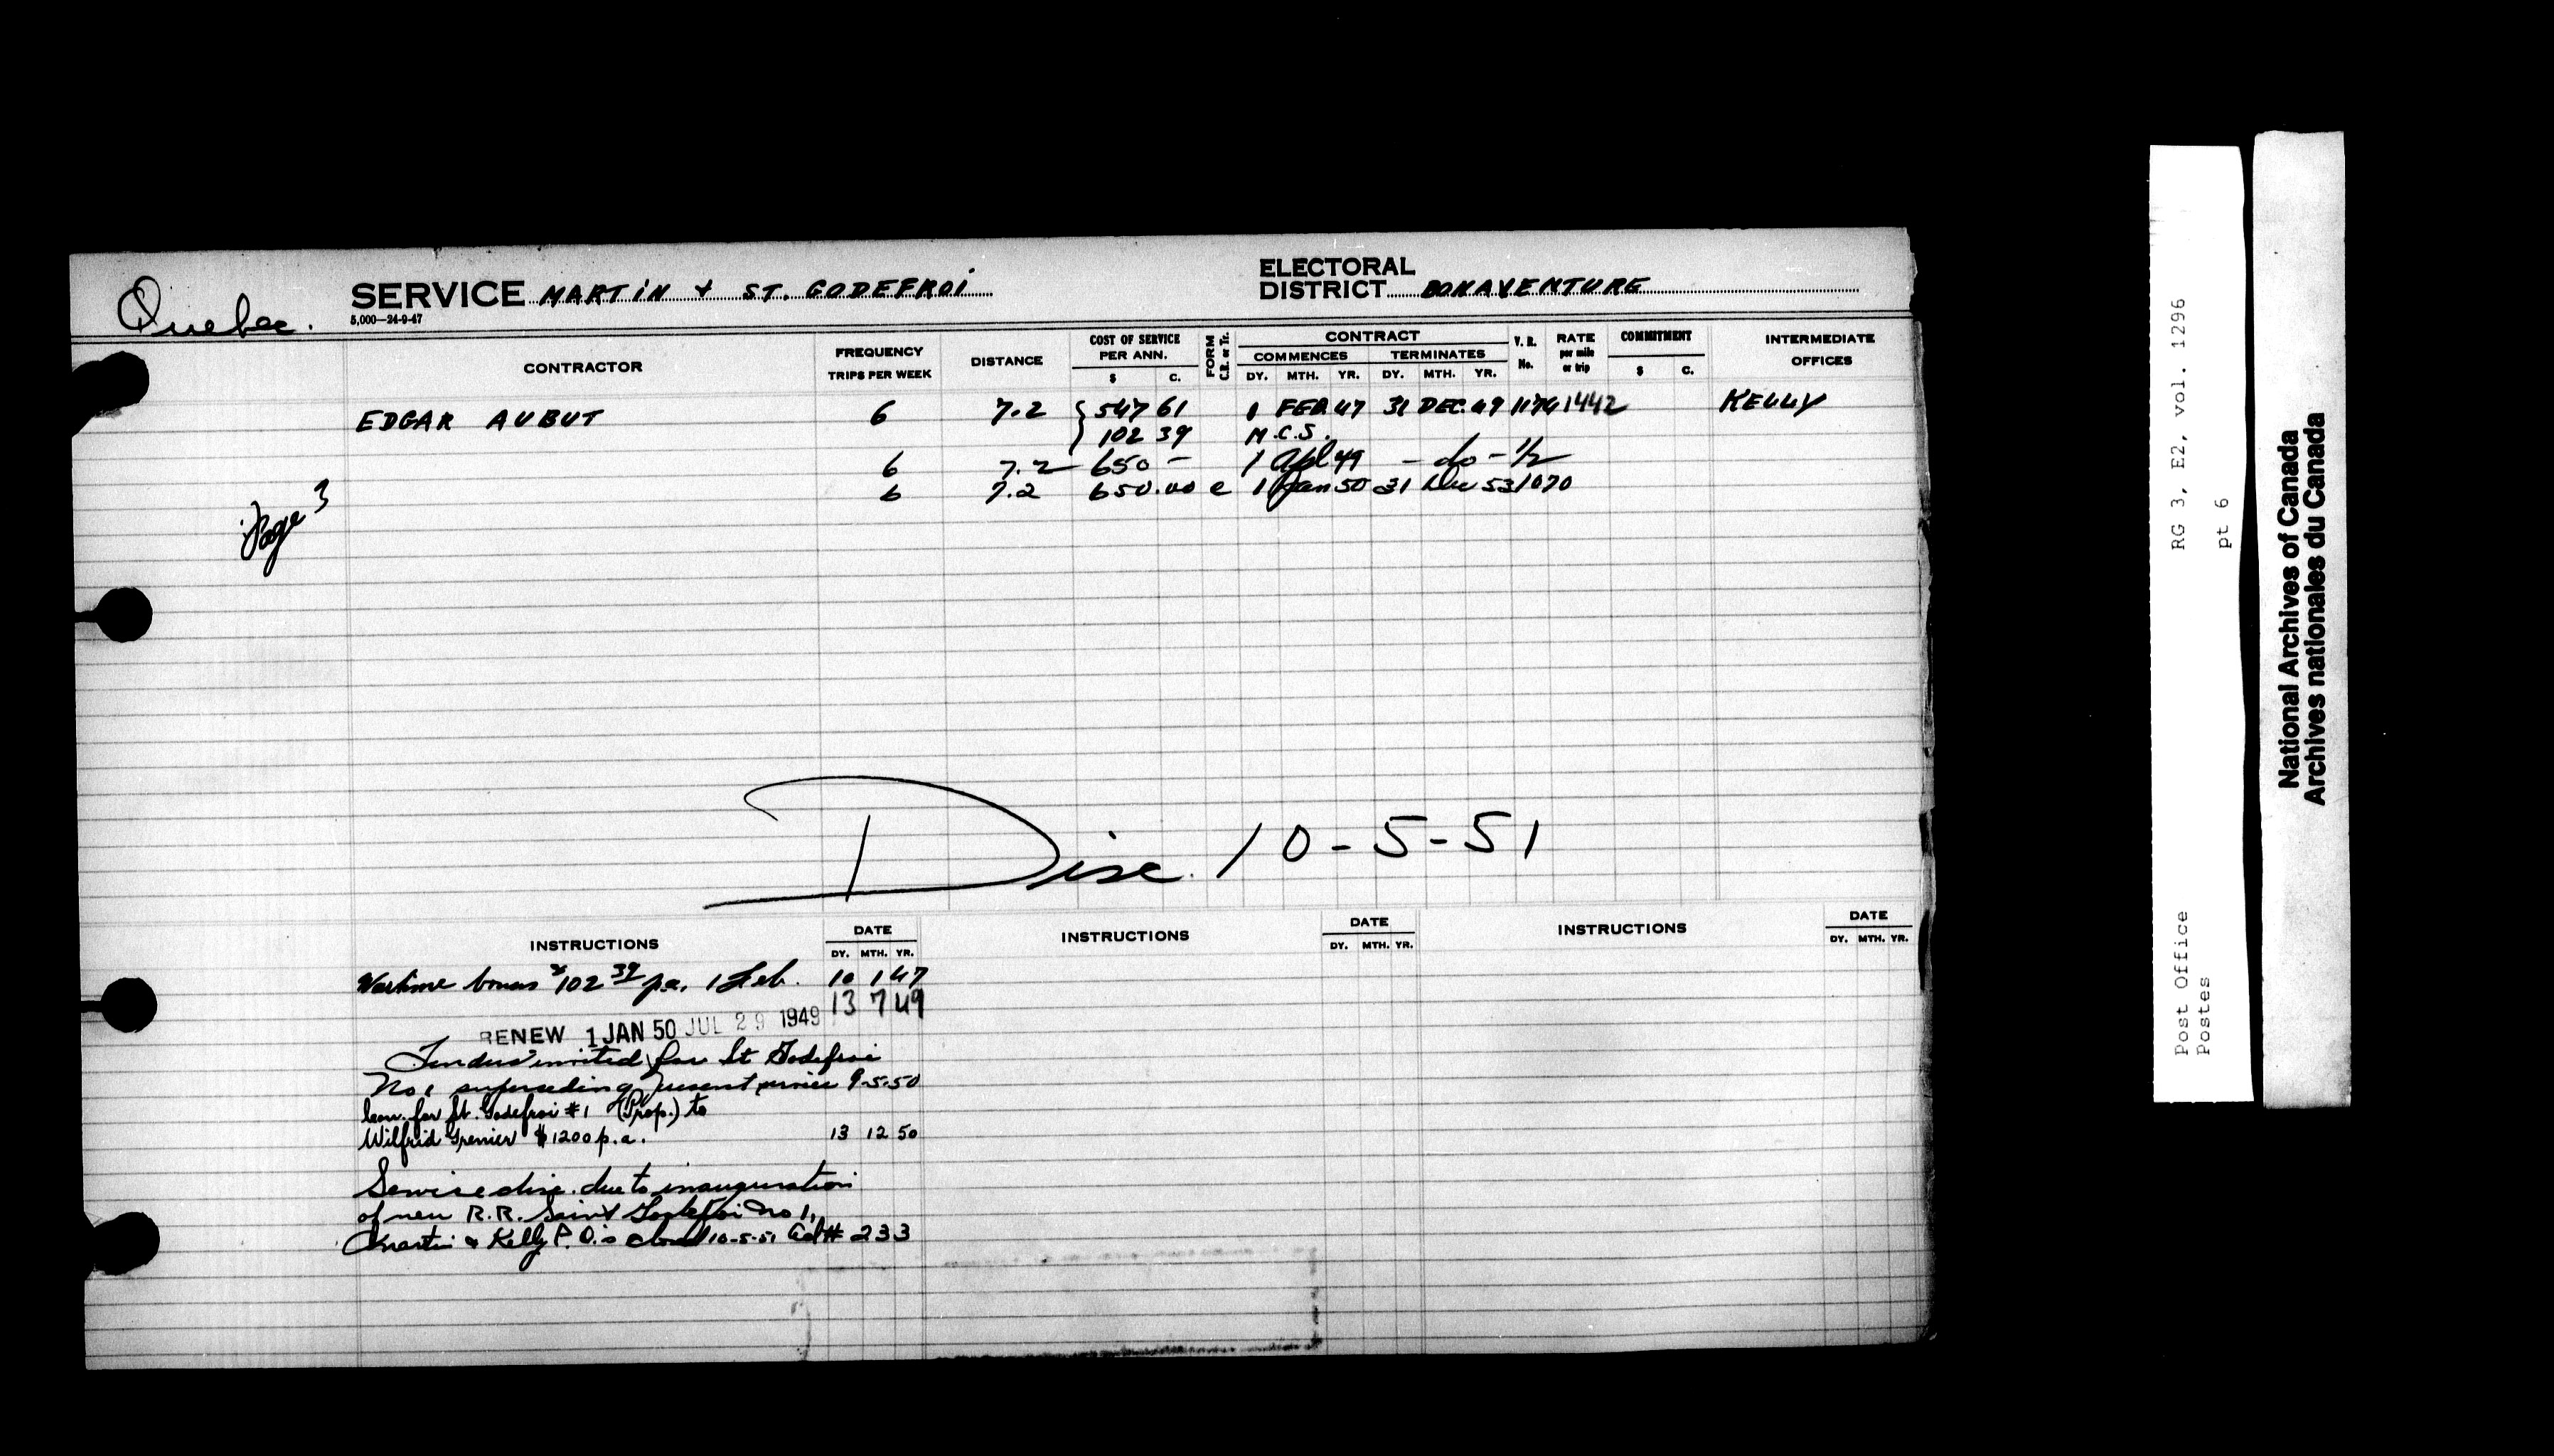 Quebec.
SERVICE MARTIN & ST. GODEFROI
5,000—24-9-47
ELECTORAL
DISTRICT BONAVENTURE
CONTRACTOR
FREQUENCY
TRIPS PER WEEK
DISTANCE
COST OF SERVICE
PER ANN.
$ C.
FORM
C.R. or Tr.
CONTRACT
COMMENCES TERMINATES
DY. MTH. YR. DY. MTH. YR.
V. R.
No.
RATE
per mile
or trip
COMMITMENT
$ C.
INTERMEDIATE
OFFICES
EDGAR AUBUT 6 7.2 547 61 1 FEB. 47 31 DEC. 49 1442 KELLY
102 39 M.C.S.
6 7.2 650 – 1 Apl 49 – do – 1/2
6 7.2 650.00 c 1 Jan 50 31 Dec 53 1070
Page 3
Disc. 10-5-51
INSTRUCTIONS DATE INSTRUCTIONS DATE INSTRUCTIONS DATE
DY. MTH. YR. DY. MTH. YR. DY. MTH. YR.
Wartime bonus $102 39 p.a. 1 Feb. 10 1 47
13 7 49
RENEW 1 JAN 50 JUL 29 1949
Tenders invited for St Godefroi
No 1 superseding present service 9-5-50
for St. Godefroi #1 (Prop.) to
Wilfrid Grenier $1200 p.a. 13 12 50
Service disc. due to inauguration
of new R.R. Saint Godefroi No 1,
Martin & Kelly P.O.s closed 10-5-51 #233
RG 3, E2, vol. 1296
pt 6
Post Office
Postes
National Archives of Canada
Archives nationales du Canada